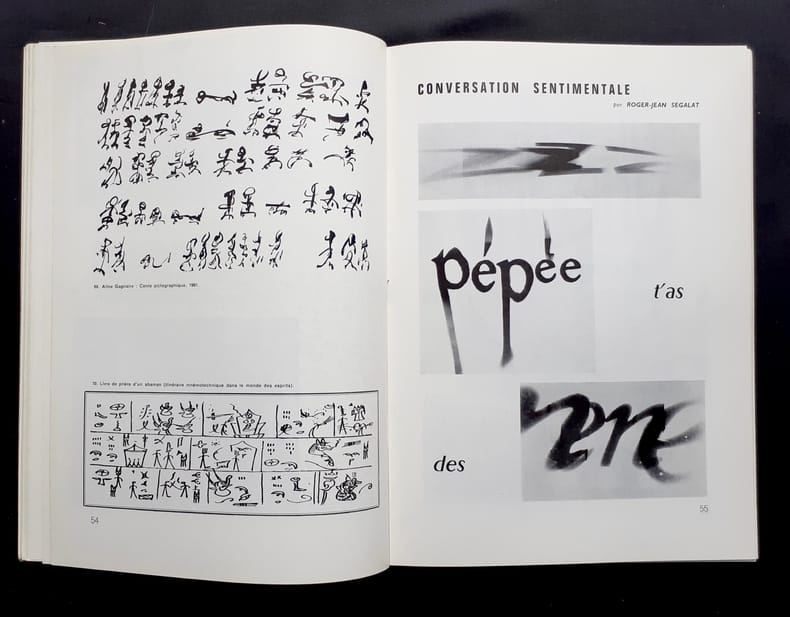 69. Aline Gagnaire : Conte pictographique, 1961.
70. Livre de prière d'un shaman (itinéraire mnémotechnique dans le monde des esprits).
54
CONVERSATION SENTIMENTALE
par ROGER-JEAN SEGALAT
pépée
t'as
des
55